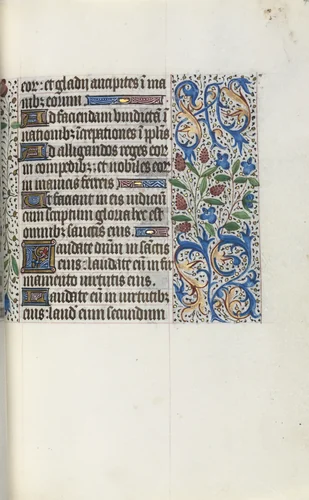 eor: et gladii ancipites ī ma
nibꝫ eorum
Ad faciendam vindictā ī
nationibꝫ īcrepationes ī pl̄is
Ad alligandos reges eor̄
in compedibꝫ: et nobiles eor̄
in manicis ferreis
Ut faciant in eis iudiciū
cum scriptum gloria hec est
omnibꝫ sanctis eius
Laudate dn̄m in sanctis
eius: laudate eū in fir
mamento virtutis eius.
Laudate eū in virtutibꝫ
eius: laud̄ eum secundum